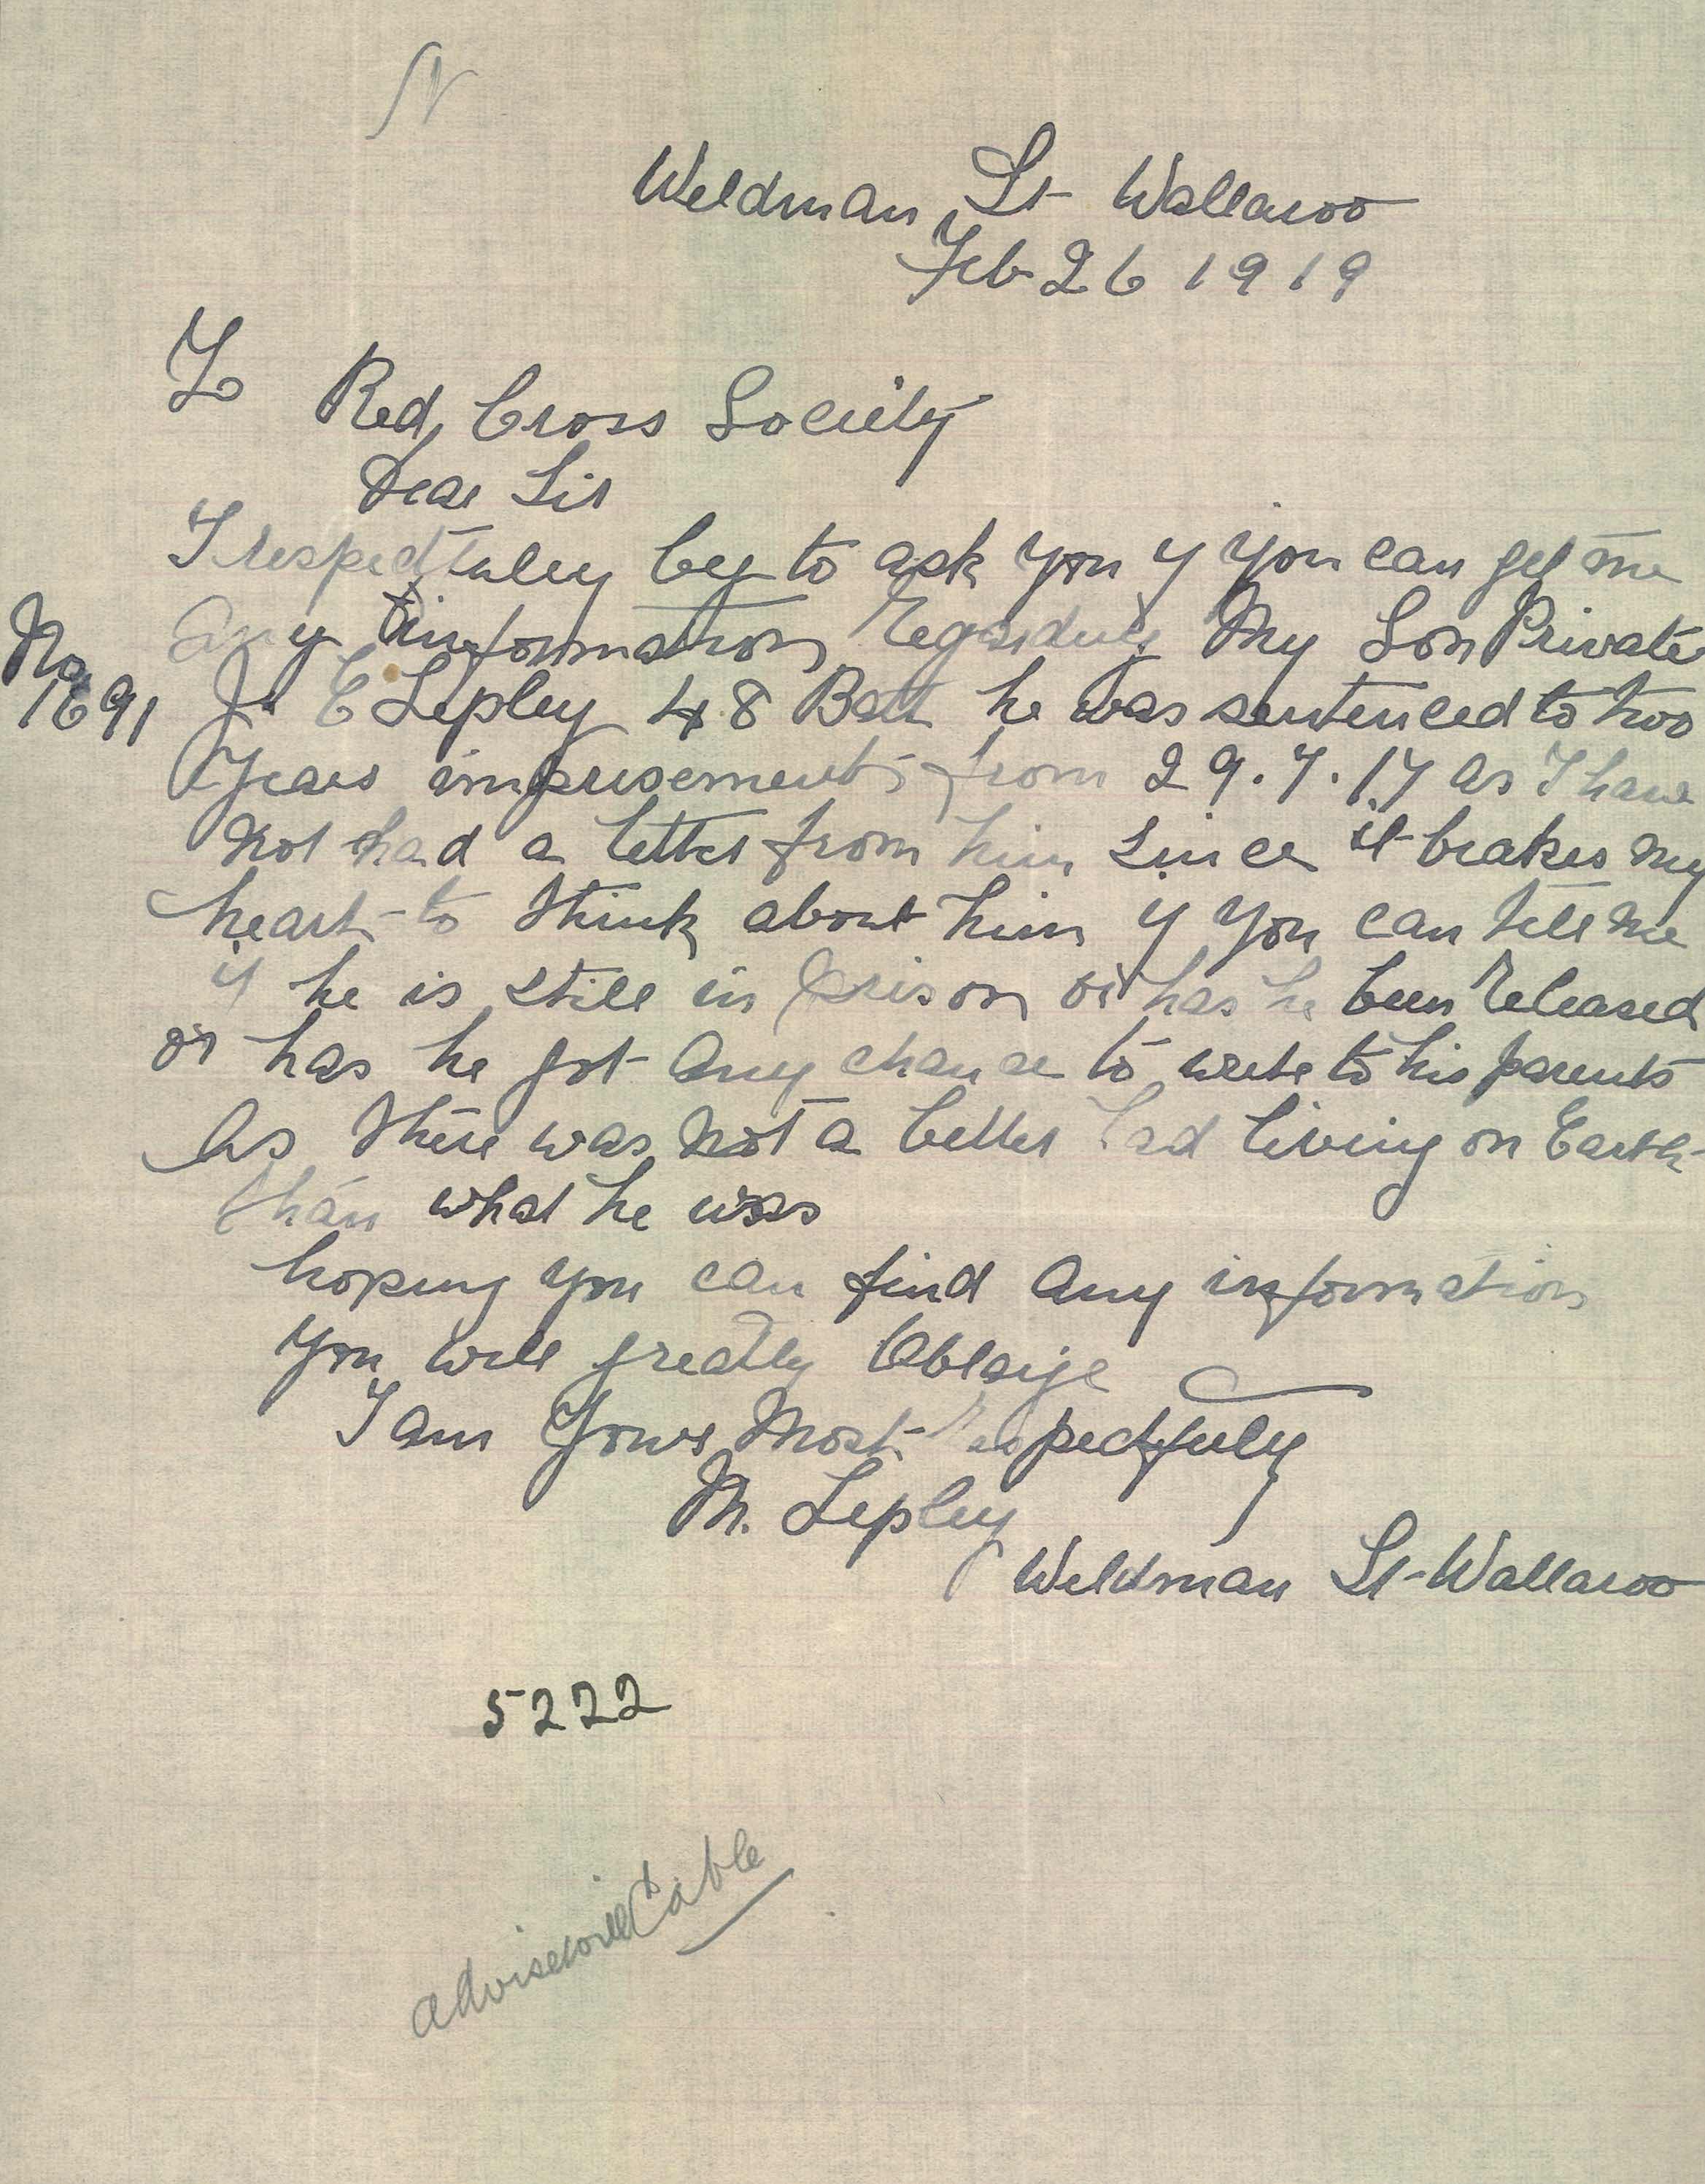 Weldman St Wallaroo
Feb 26 1919
To Red Cross Society
Dear Sir
I respectfuley beg to ask you if you can get me
any information Regarding My Son Private
No 1691 J. E Lepley 48 Batt he was sentenced to two
Years imprisement from 29.7.17 as I have
not had a letter from him Since it brakes my
heart to think about him if you can tell me
if he is still in prison or has he been released
or has he got any chance to write to his parents
as there was not a better lad living on Earth
than what he was
hoping you can find any information
you will greatly Oblaige
I am Yours Most Respectfuly
M. Lepley
Weldman St Wallaroo
5222
advise will Cable